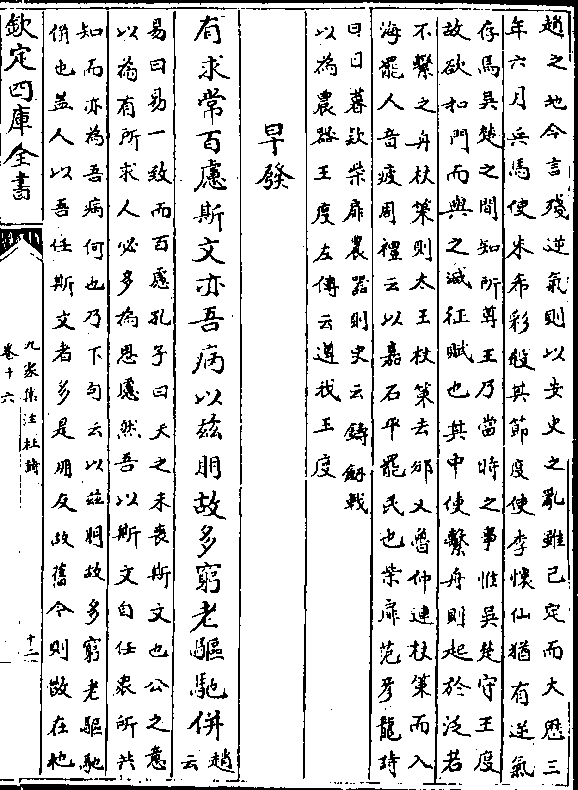 趙之地今言殘逆氣則以安史之亂雖已定而大厯三
年六月兵馬使朱希彩殺其節度使李懷仙猶有逆氣
存焉吳楚之間知所尊王乃當時之事惟吳楚守王度
故欲扣門而與之減征賦也其中使繫舟則起於泛若
不繫之舟杖策則太王杖策去邠又魯仲連杖策而入
海罷人音疲周禮云以嘉石平罷民也柴扉范彥龍詩
曰日暮欵柴扉農器則史云鑄劒戟
以為農器王度左傳云遵我王度
早發
有求常百慮斯文亦吾病以兹朋故多窮老驅馳併趙云
易曰易一致而百慮孔子曰天之未喪斯文也公之意
以為有所求人必多為思慮然吾以斯文自任衆所共
知而亦為吾病何也乃下句云以兹朋故多窮老驅馳
併也盖人以吾任斯文者多是朋友故舊今則散在他
欽定四庫全書
九家集注杜詩
卷十六
十二